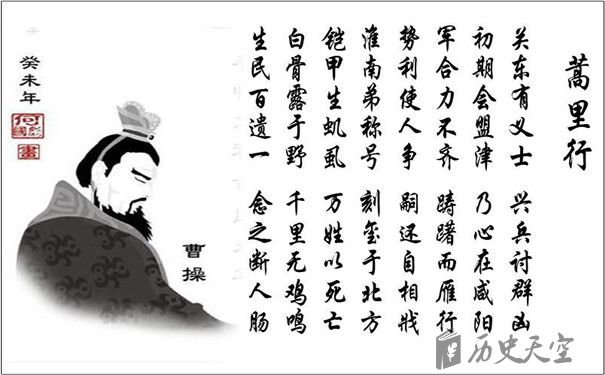 蒿里行
关东有义士 兴兵讨群凶
初期会盟津 乃心在咸阳
军合力不齐 踌躇而雁行
势利使人争 嗣还自相戕
淮南弟称号 刻玺于北方
铠甲生虮虱 万姓以死亡
白骨露于野 千里无鸡鸣
生民百遗一 念之断人肠
曹操
癸未年
畫
历史天空